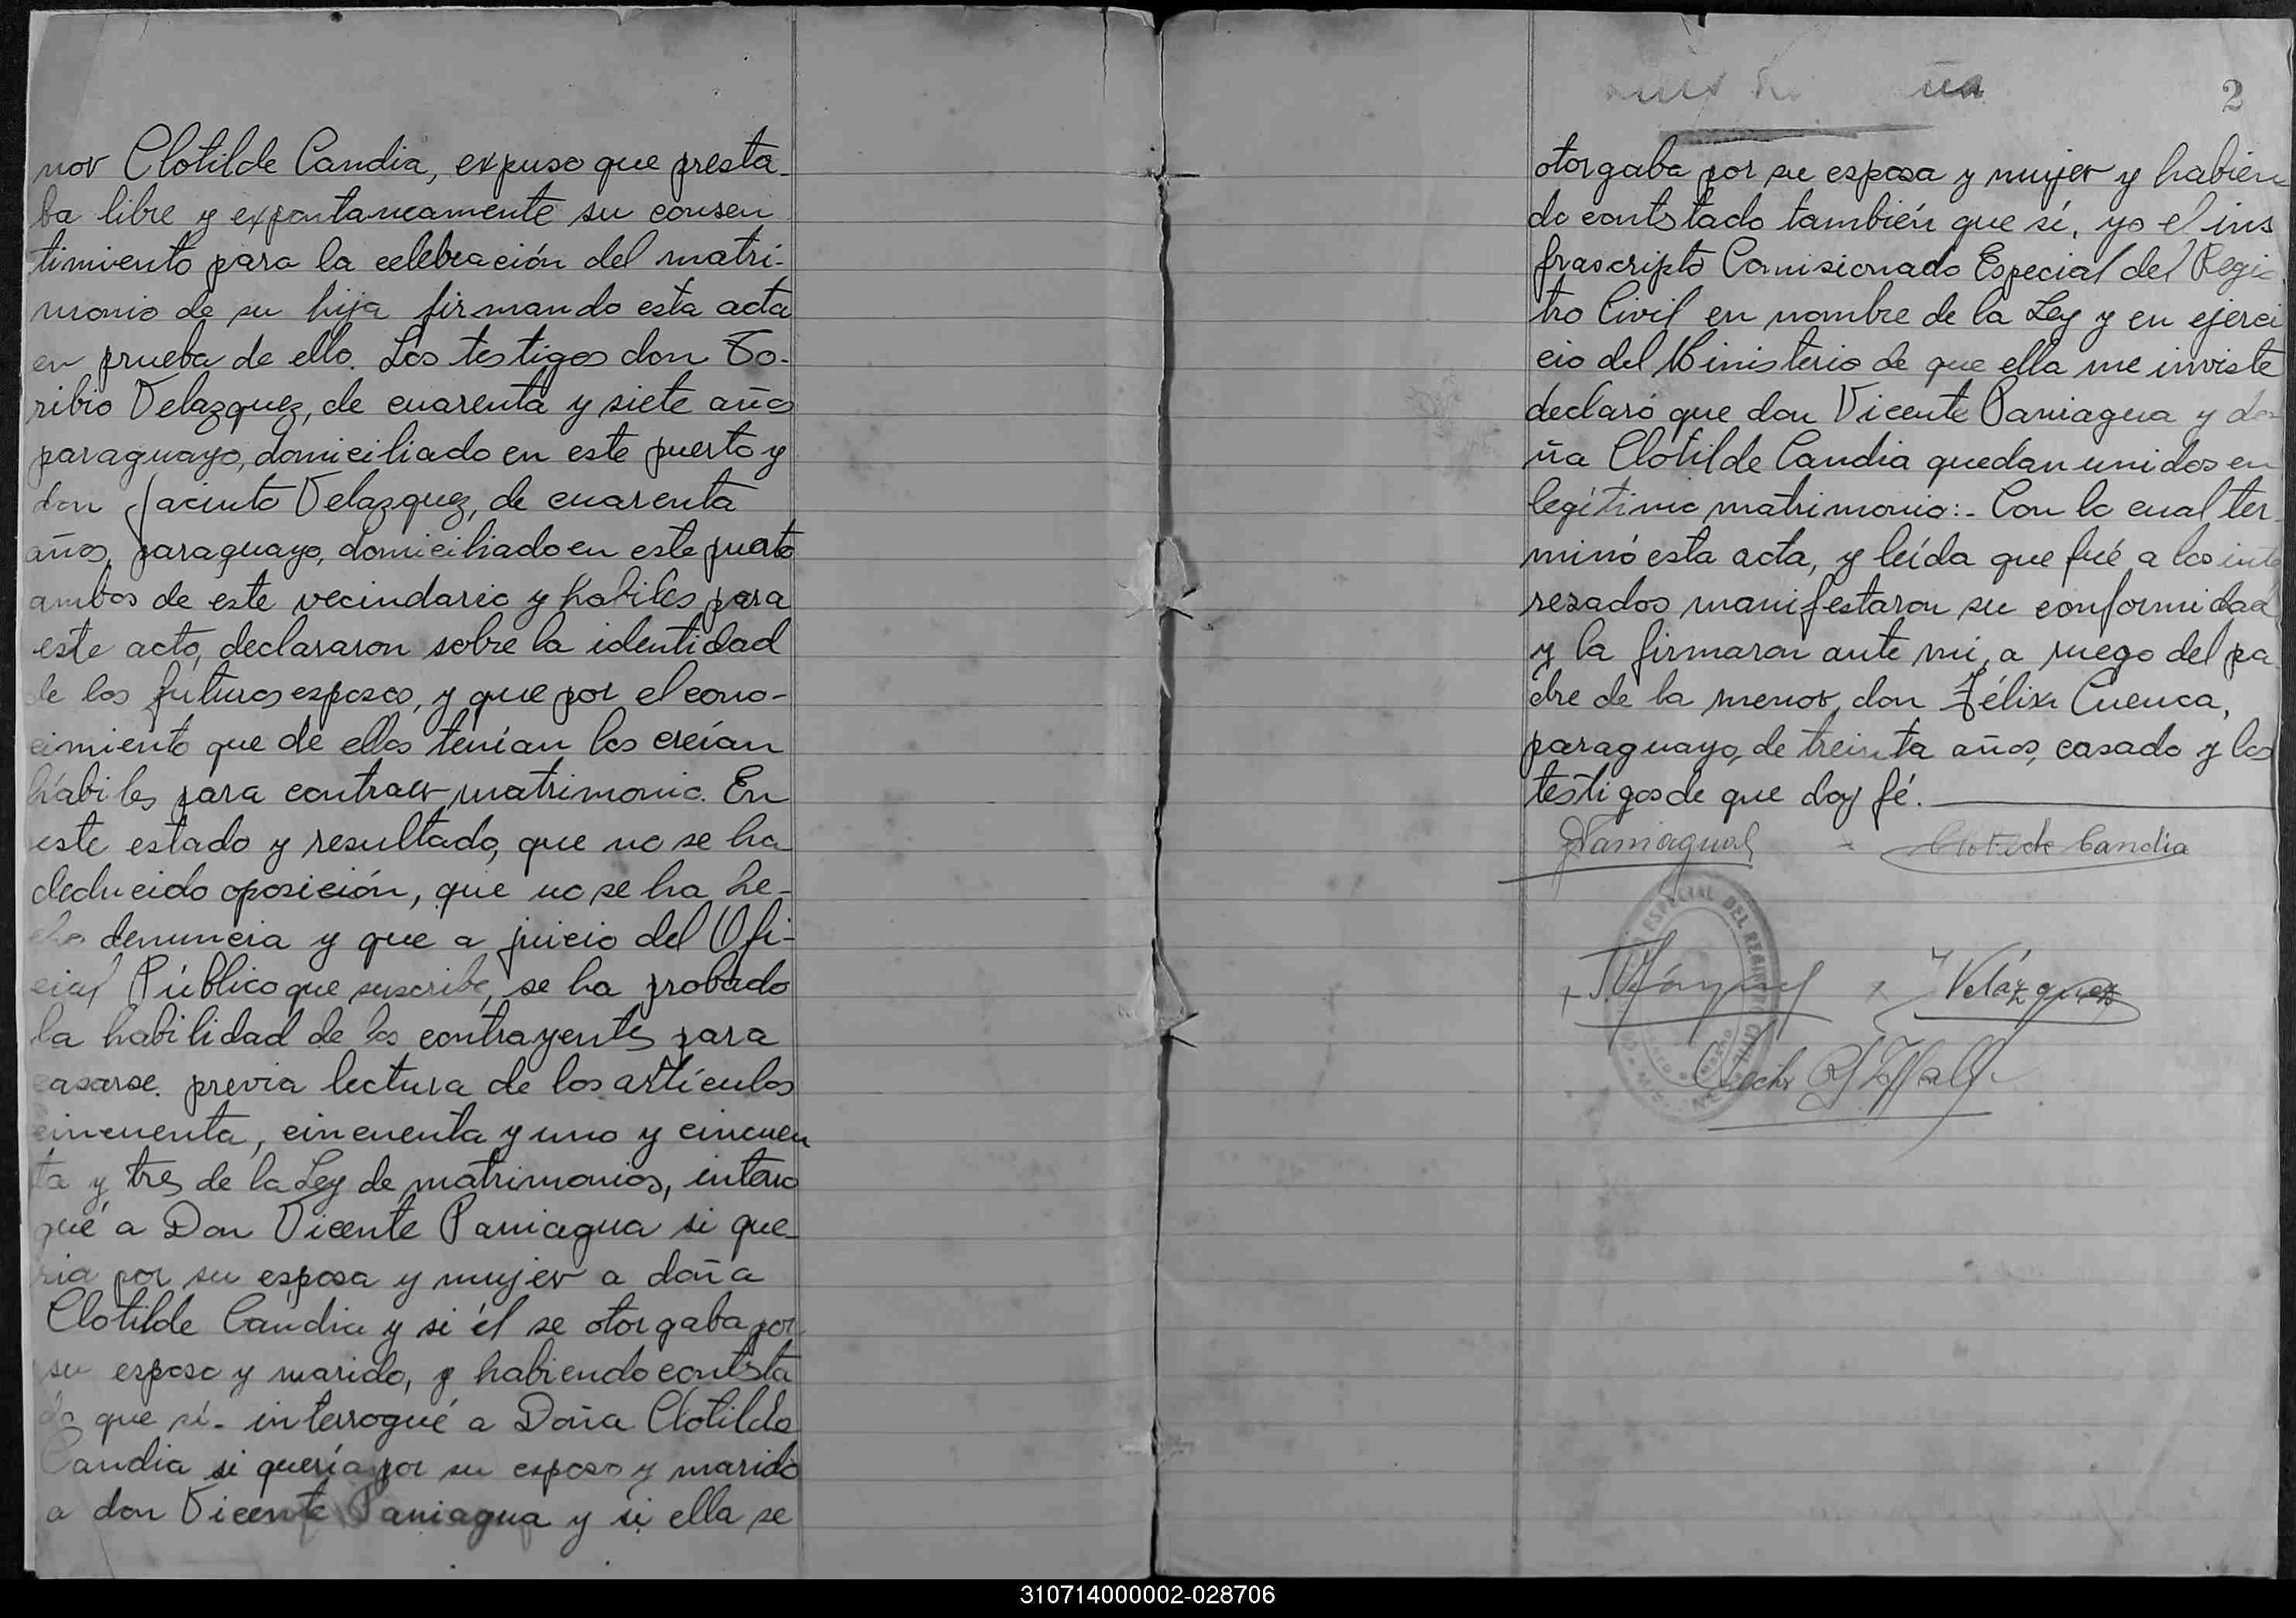 nor Clotilde Candia, expuso que presta-
ba libre y expontaneamente su consen
timiento para la celebración del matri-
monio de su hija firmando esta acta
en prueba de ello. Los testigos don To-
ribio Velazquez, de cuarenta y siete años
paraguayo, domiciliado en este puerto y
don Jacinto Velazquez, de cuarenta
años, paraguayo, domiciliado en este puerto
ambos de este vecindario y habiles para
este acto, declararon sobre la identidad
de los futuros esposos, y que por el cono-
cimiento que de ellos tenían los creían
hábiles para contraer matrimonio. En
este estado y resultado, que no se ha
deducido oposición, que no se ha he-
cho denuncia y que a juicio del Ofi-
cial Público que suscribe, se ha probado
la habilidad de los contrayentes para
casarse. previa lectura de los artículos
cincuenta, cincuenta y uno y cincuen
ta y tres de la Ley de matrimonios, interro
gué a Don Vicente Paniagua si que-
ria por su esposa y mujer a doña
Clotilde Candia y si él se otorgaba por
su esposo y marido, y habiendo contesta
do que sí- interrogué a Doña Clotilde
Candia si quería por su esposo y marido
a don Vicente Paniagua y si ella se
2
otorgaba por su esposa y mujer y habien
do contstado también que sí, yo el ins
frascripto Comisionado Especial del Regis
tro Civil en nombre de la Ley y en ejerci
cio del Ministerio de que ella me inviste
declaró que don Vicente Paniagua y do
ña Clotilde Candia quedan unidos en
legítimo matrimonio:- Con lo cual ter
minó esta acta, y leída que fué a los inte
resados manifestaron su conformidad
y la firmaron ante mi, a ruego del pa
dre de la menor, don Félix Cuenca,
paraguayo, de treinta años, casado y los
testigos de que doy fé.
Paniagua
Clotilde Candia
ESPECIAL DEL REGISTRO CIVIL
Velázquez
310714000002-028706